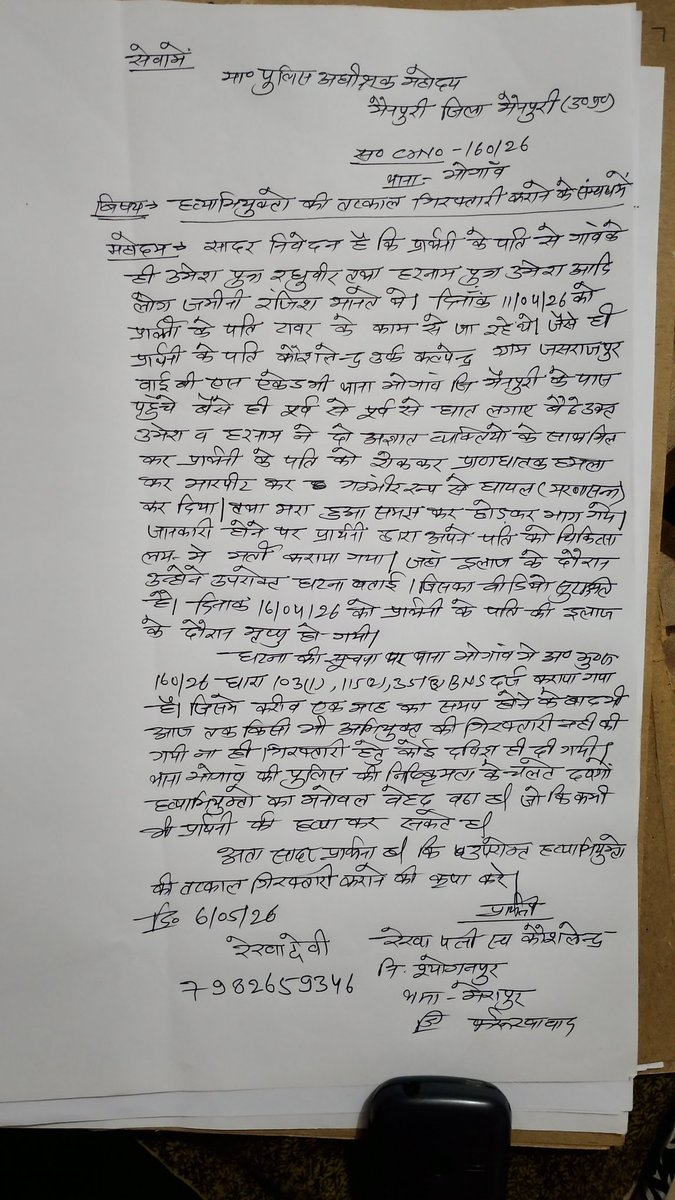 सेवामें
मा० पुलिस अधीक्षक महोदय
मैनपुरी जिला मैनपुरी (उ०प्र०)
अ० CMNO - 160/26
थाना - भोगाँव
बिषय → हत्याभियुक्तो की तत्काल गिरफ्तारी कराने के संम्बधमें
महोदय → सादर निवेदन है कि प्रार्थिनी के पति से गावके
ही उमेश पुत्र रघुवीर तथा हरनाम पुत्र उमेश आदि
लोग जमीनी रंजिश मानते थे। दिनाँक 11/04/26 को
प्रार्थिनी के पति टावर के काम से जा रहे थे। जैसे ही
प्रार्थिनी के पति कौशलेन्द्र उर्फ कल्पेन्द्र ग्राम जसराजपुर
वाई बी एस ऐकेडमी थाना भोगांव जि मैनपुरी के पास
पहुँचे वैसे ही पूर्व से पूर्व से घात लगाए बैठे उक्त
उमेश व हरनाम ने दो अज्ञात व्यक्तियो के साथ मिल
कर प्रार्थिनी के पति को रोककर प्राणघातक हमला
कर मारपीट कर गम्भीर रूप से घायल (मरणासन्न)
कर दिया। तथा मरा हुआ समझ कर छोडकर भाग गये।
जानकारी होने पर प्रार्थिनी द्वारा अपने पति को चिकित्सा
लय में भर्ती कराया गया। जहां इलाज के दौरान
उन्होने उपरोक्त घटना बताई। जिसका वीडियो सुरक्षित
है। दिनाकं 16/04/26 को प्रार्थिनी के पति की इलाज
के दौरान मृत्यु हो गयी।
घटना की सूचना पर थाना भोगांव मे अ० मु०अ०
160/26 धारा 103(1), 115(2), 351(3) BNS दर्ज कराया गया
है। जिसमे करीव एक माह का समय होने के बाद भी
आज तक किसी भी अभियुक्त की गिरफ्तारी नही की
गयी ना ही गिरफ्तारी हेतु कोई दविश ही दी गयी।
थाना भोगांव की पुलिस की निष्क्रियता के चलते
हत्याभियुक्तो का मनोवल वेहद वढा है। जो कि कभी
भी प्रार्थिनी की हत्या कर सकते है।
अतः सादर प्रार्थना है। कि उपरोक्त हत्याभियुक्तो
की तत्काल गिरफ्तारी कराने की कृपा करे।
दि० 6/05/26
प्रार्थिनी
रेखा देवी
रेखा पत्नी स्व कौशलेन्द्र
7982659346
नि:
थाना - मेरापुर
जि फर्रुखाबाद